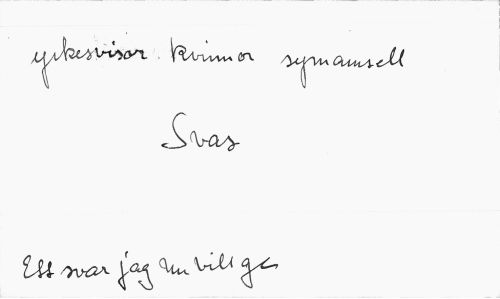 yrkesvisor kvinnor symamsell
Svar
Ett svar jag nu vill ge